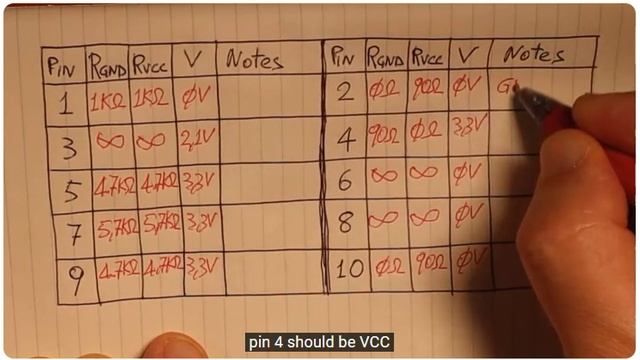 PIN RGND RVCC V Notes PIN RGND RVCC V Notes
1 1KΩ 1KΩ ØV 2 ØΩ 90Ω ØV G
3 ∞ ∞ 2,1V 4 90Ω ØΩ 3,3V
5 4.7KΩ 4.7KΩ 3,3V 6 ∞ ∞ ØV
7 5,7KΩ 5,7KΩ 3,3V 8 ∞ ∞ ØV
9 4.7KΩ 4.7KΩ 3,3V 10 ØΩ 90Ω ØV
pin 4 should be VCC